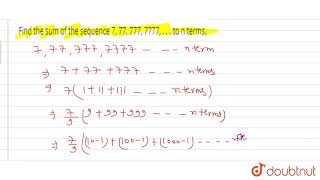 Find the sum of the sequence 7, 77, 777, 7777, . . . to n terms.
7, 77, 777, 7777 - - - - - n term
⇒ 7 + 77 + 777 - - - - - n terms
⇒ 7 ( 1 + 11 + 111 - - - - - n terms)
⇒ 7/9 ( 9 + 99 + 999 - - - - n terms)
⇒ 7/9 ( (10-1) + (100-1) + (1000-1) - - - - -
doubtnut